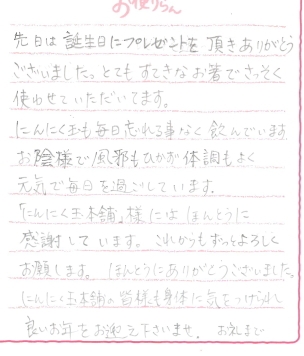 お便りらん
先日は誕生日にプレゼントを頂きありがとう
ございました。とてもすてきなお箸でさっそく
使わせていただいてます。
にんにく玉も毎日忘れる事なく飲んでいます
お陰様で風邪もひかず体調もよく
元気で毎日を過ごしています。
「にんにく玉本舗」様にはほんとうに
感謝しています。これからもずっとよろしく
お願します。ほんとうにありがとうございました。
にんにく玉本舗の皆様も身体に気をつけられ
良いお年をお迎え下さいませ。お礼まで